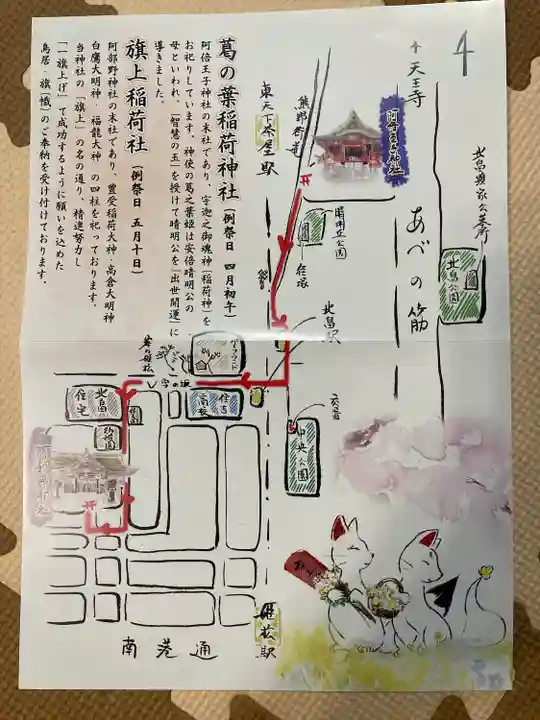 葛の葉稲荷神社（例祭日 四月初午）
阿倍王子神社の末社であり、宇迦之御魂神（稲荷神）を
お祀りしています。神使の葛之葉姫は安倍晴明公の
母といわれ、「智慧の玉」を授けて晴明公を「出世開運」に
導きました。
旗上稲荷社（例祭日 五月十日）
阿部野神社の末社であり、豊受稲荷大神・高倉大明神
白鷹大明神・福龍大神の四柱を祀っております。
当神社の「旗上」の名の通り、精進努力し
「一旗上げ」て成功するように願いを込めた
鳥居・旗（幟）のご奉納を受け付けております。
4
↑天王寺
あべの筋
北畠顕家公墓所
北畠公園
阿倍王子神社
熊野街道
東天下茶屋駅
晴明丘公園
経塚
北畠駅
交番
中央公園
グラウンド
V字の坂
住吉
高校
北畠
住宅
幼稚園
阿部野神社
姫松駅
南港通